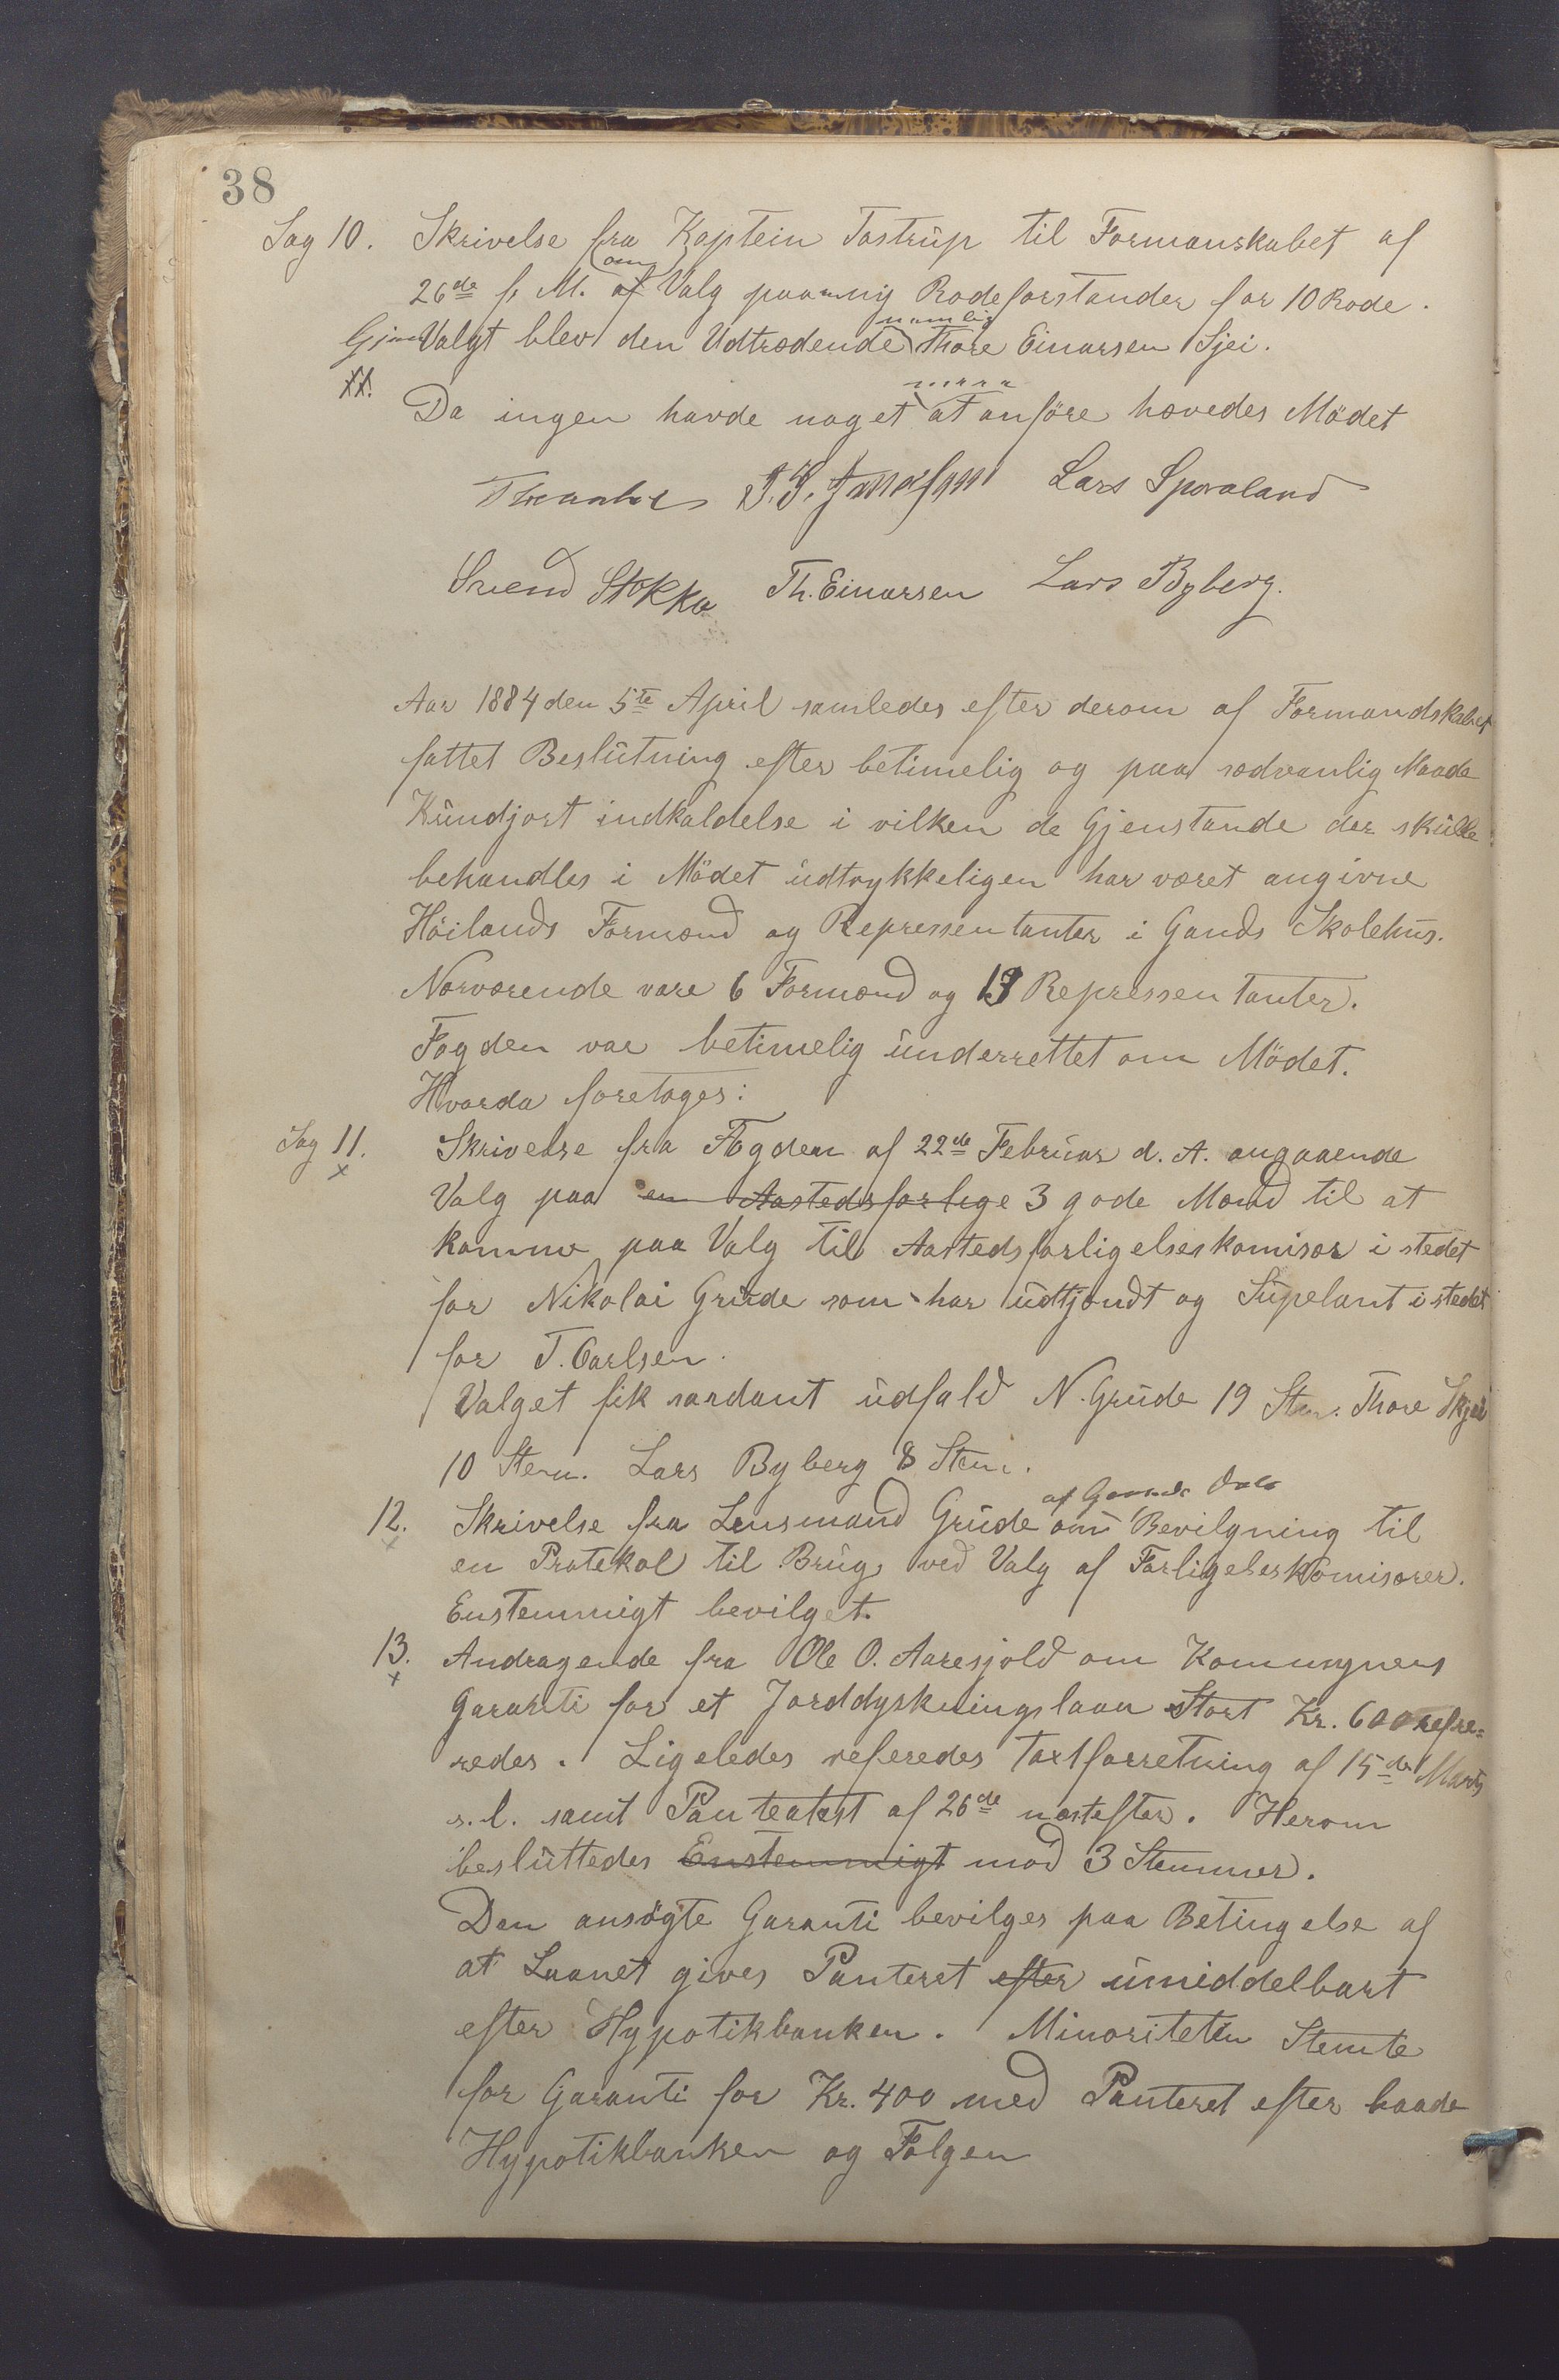 38
Sag 10. Skrivelse fra Kaptein Tostrup til Formanskabet af
om
26de f. M. af Valg paa ny Rodeforstander for 10 Rode.
namlig
Valgt blev den Udtrædende Thore Einarsen Sjei.
mera
Da ingen havde noget at anføre hævedes Mödet
Lars Sporaland
Svend Stokka Th. Einarsen Lars Byberg.
Aar 1884 den 5te April samledes efter derom af Formandskabet
fattet Beslutning efter betimelig og paa sædvanlig Maade
Kundjort indkaldelse i vilken de Gjenstande der skulle
behandles i Mödet udtrykkeligen har været angivne
Höilands Formænd og Repressentanter i Gands Skolehus.
Nærværende vare 6 Formænd og 13 Repressentanter.
Fogden var betimelig underrettet om Mödet.
Hvorda foretages:
Sag 11. Skrivelse fra Fogden af 22de Februar d. A. angaaende
x
Valg paa en Aastedsforlige 3 gode Mænd til at
komme paa Valg til Aastedsforligelseskomisær i stedet
for Nikolai Grude som har udtjendt og Supelant i stedet
for T. Carlsen.
Valget fik sardant udfald N. Grude 19 Stem. Thore Skjæi
10 Stem. Lars Byberg 8 Stem.
af Gands
12. Skrivelse fra Lensmand Grude om Bevilgning til
x
en Protekol til Brug ved Valg af Forligelseskomisærer.
Enstemmigt bevilget.
13. Andragende fra Ole O. Aaresjold om Kommunens
x
Garanti for et Jorddyskningslaan Stort Kr. 600 refre=
redes. Ligeledes referedes Taxtforretning af 15de Marts
s. l. samt Panteatest af 26de næstefter. Herom
besluttedes Enstemmigt mod 3 Stemmer.
Den ansögte Garanti bevilges paa Betingelse af
at Laanet gives Panteret efter umiddelbart
efter Hypotikbanken. Minoriteten Stemte
for Garanti for Kr. 400 med Panteret efter baade
Hypotikbanken og Følgen